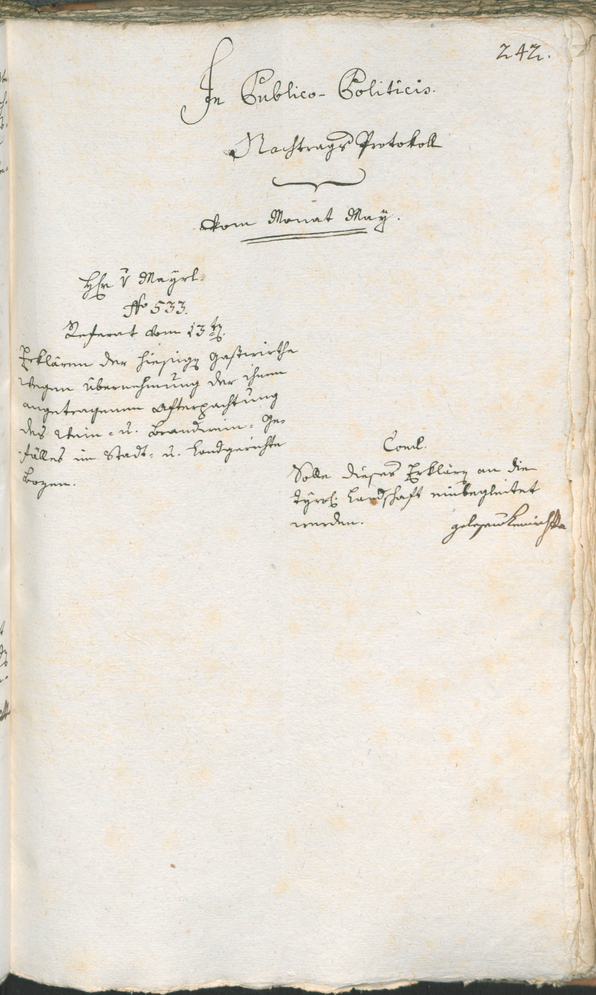 242.
In Publico-Politicis.
Nachtrags Protokoll
vom Monat May.
Hr. v Mayrl.
No 533.
Referat vom 13ten
Erklären der hiesigen Gastwirthe
wegen Übernehmung der ihnen
angetragenen Afterpachtung
des Wein- u. Brandwein-Ge-
fälles im Stadt- u. Landgerichte
Bozen.
Concl.
Solle dieses Erklären an die
tyrol. Landschaft einbegleitet
werden.
gelesen